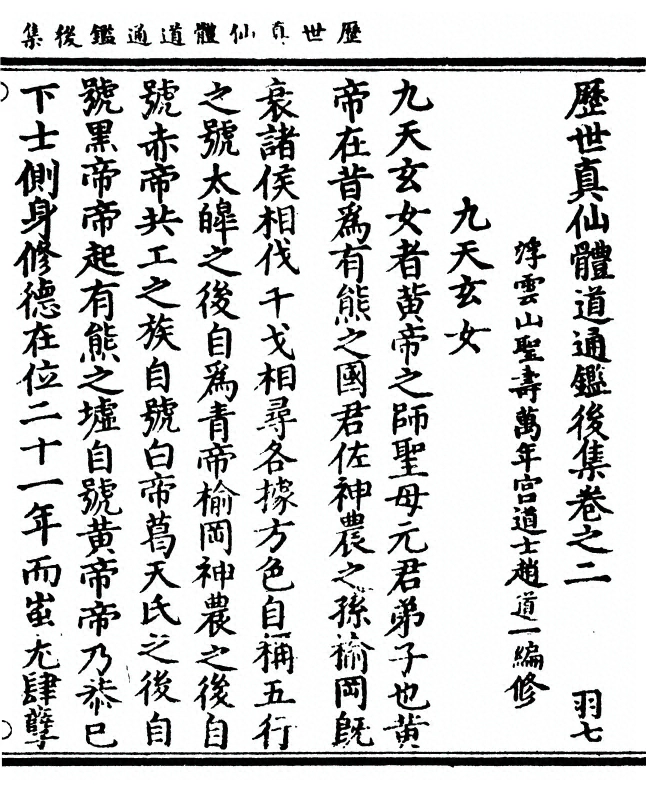 歷世真仙體道通鑑後集
歷世真仙體道通鑑後集卷之二 羽七
浮雲山聖壽萬年宮道士趙道一編修
九天玄女
九天玄女者黄帝之師聖母元君弟子也黄
帝在昔爲有熊之國君佐神農之孫榆岡旣
衰諸侯相伐干戈相尋各據方色自稱五行
之號太皡之後自爲青帝榆岡神農之後自
號赤帝共工之族自號白帝葛天氏之後自
號黑帝帝起有熊之墟自號黄帝帝乃恭巳
下士側身修德在位二十一年而蚩尤肆孽